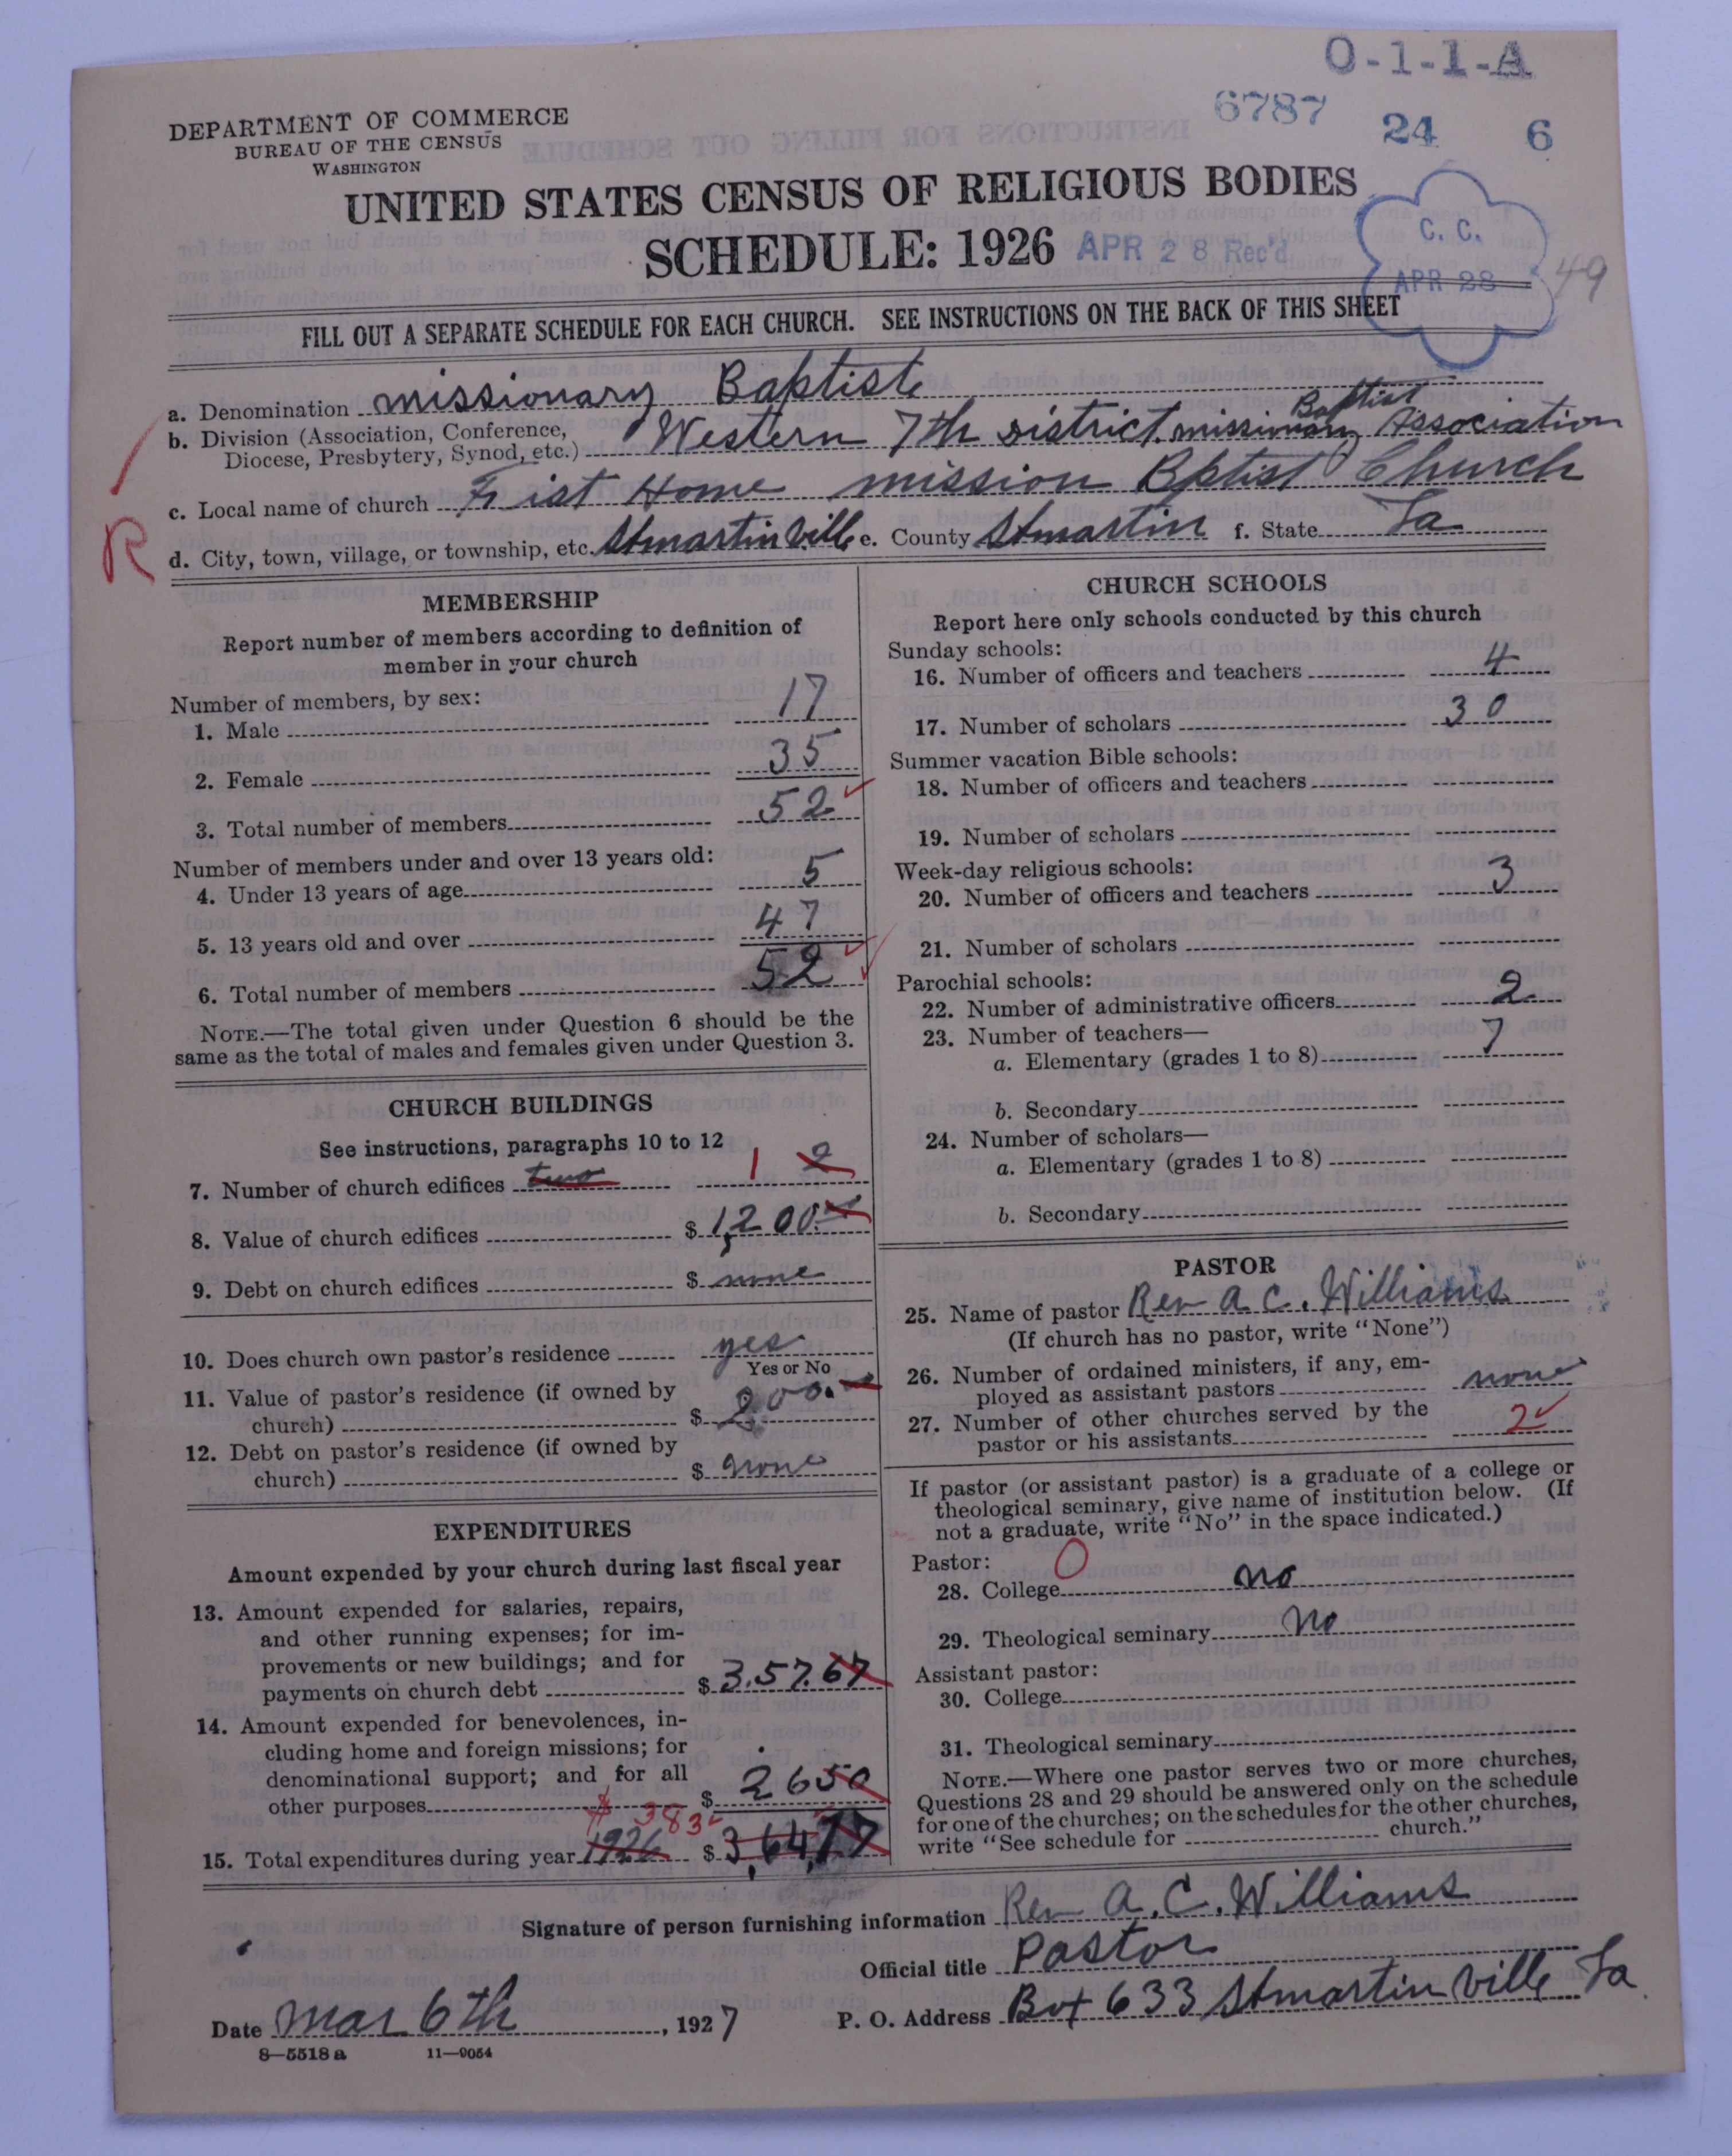 0-1-1-A
6787 24 6
DEPARTMENT OF COMMERCE
BUREAU OF THE CENSUS
WASHINGTON
UNITED STATES CENSUS OF RELIGIOUS BODIES
SCHEDULE: 1926 APR 28 Rec'd
C. C.
APR 28
49
FILL OUT A SEPARATE SCHEDULE FOR EACH CHURCH. SEE INSTRUCTIONS ON THE BACK OF THIS SHEET
a. Denomination missionary Baptist
b. Division (Association, Conference, Diocese, Presbytery, Synod, etc.) Western 7th District missionary Baptist Association
c. Local name of church Frist Home mission Bptist Church
R
d. City, town, village, or township, etc. Stmartinville e. County Stmartin f. State La
MEMBERSHIP
Report number of members according to definition of
member in your church
Number of members, by sex:
1. Male 17
2. Female 35
3. Total number of members 52
Number of members under and over 13 years old:
4. Under 13 years of age 5
5. 13 years old and over 47
6. Total number of members 52
NOTE.—The total given under Question 6 should be the
same as the total of males and females given under Question 3.
CHURCH BUILDINGS
See instructions, paragraphs 10 to 12
7. Number of church edifices two 1 2
8. Value of church edifices $ 1,200.
9. Debt on church edifices $ none
10. Does church own pastor's residence yes
Yes or No
11. Value of pastor's residence (if owned by
church) $ 200.
12. Debt on pastor's residence (if owned by
church) $ none
EXPENDITURES
Amount expended by your church during last fiscal year
13. Amount expended for salaries, repairs,
and other running expenses; for im-
provements or new buildings; and for
payments on church debt $ 3.57.67
14. Amount expended for benevolences, in-
cluding home and foreign missions; for
denominational support; and for all
other purposes $ 26 50
$ 383
15. Total expenditures during year 1926 $ 3,64,77
CHURCH SCHOOLS
Report here only schools conducted by this church
Sunday schools:
16. Number of officers and teachers 4
17. Number of scholars 30
Summer vacation Bible schools:
18. Number of officers and teachers
19. Number of scholars
Week-day religious schools:
20. Number of officers and teachers 3
21. Number of scholars
Parochial schools:
22. Number of administrative officers 2
23. Number of teachers—
a. Elementary (grades 1 to 8) 7
b. Secondary
24. Number of scholars—
a. Elementary (grades 1 to 8)
b. Secondary
PASTOR
25. Name of pastor Rev A. C. Williams
(If church has no pastor, write "None")
26. Number of ordained ministers, if any, em-
ployed as assistant pastors none
27. Number of other churches served by the
pastor or his assistants 2
If pastor (or assistant pastor) is a graduate of a college or
theological seminary, give name of institution below. (If
not a graduate, write "No" in the space indicated.)
Pastor: 0
28. College no
29. Theological seminary No
Assistant pastor:
30. College
31. Theological seminary
NOTE.—Where one pastor serves two or more churches,
Questions 28 and 29 should be answered only on the schedule
for one of the churches; on the schedules for the other churches,
write "See schedule for church."
Signature of person furnishing information Rev A. C. Williams
Official title Pastor
Date Mar 6th, 1927 P. O. Address Box 633 Stmartinville La
8—5518 a 11—9054